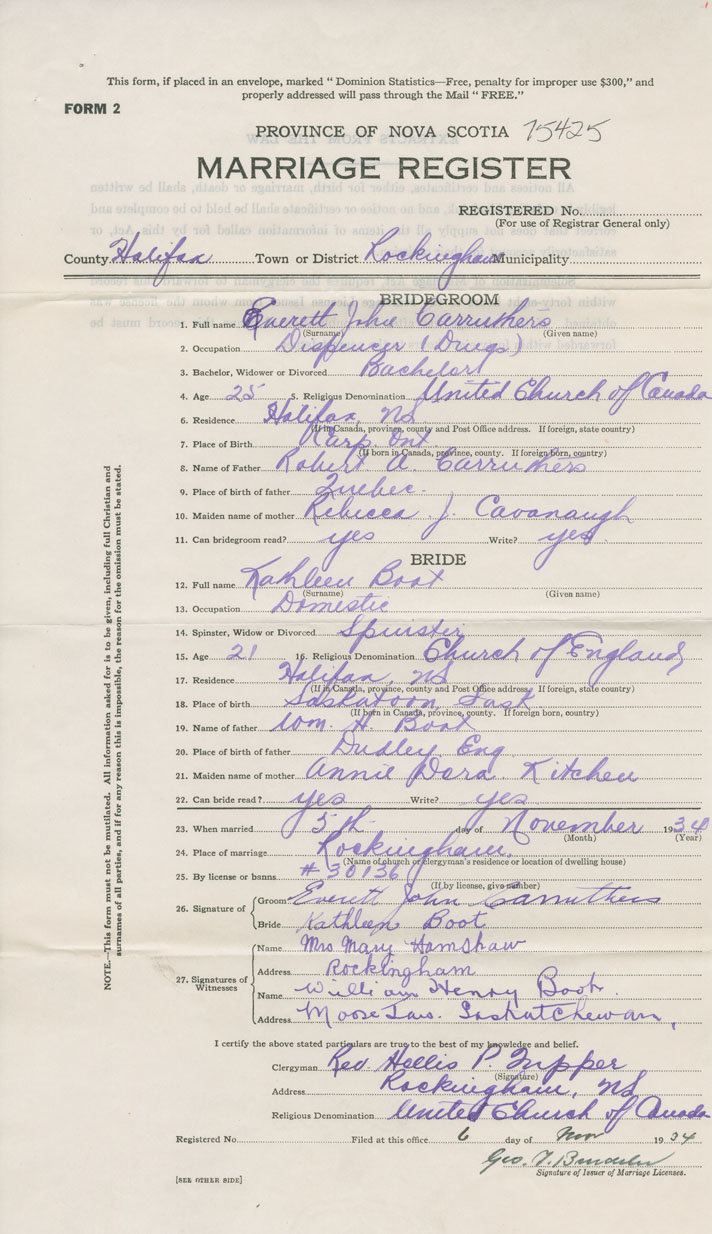 This form, if placed in an envelope, marked “ Dominion Statistics—Free, penalty for improper use $300,” and
properly addressed will pass through the Mail “ FREE.”
FORM 2
PROVINCE OF NOVA SCOTIA 15425
MARRIAGE REGISTER
REGISTERED No.
(For use of Registrar General only)
County Halifax Town or District Rockingham Municipality
BRIDEGROOM
1. Full name Everett John Carruthers
(Surname) (Given name)
2. Occupation Dispencer (Drugs)
3. Bachelor, Widower or Divorced Bachelor
4. Age 25 5. Religious Denomination United Church of Canada
6. Residence Halifax, NS
(If in Canada, province, county and Post Office address. If foreign, state country)
7. Place of Birth Carp. Ont
(If born in Canada, province, county. If foreign born, country)
8. Name of Father Robert A. Carruthers
9. Place of birth of father Quebec.
10. Maiden name of mother Rebecca J. Cavanaugh
11. Can bridegroom read? yes Write? yes.
BRIDE
12. Full name Kathleen Boot
(Surname) (Given name)
13. Occupation Domestic
14. Spinster, Widow or Divorced Spinster
15. Age 21 16. Religious Denomination Church of England
17. Residence Halifax, NS
(If in Canada, province, county and Post Office address. If foreign, state country)
18. Place of birth Saskatoon Sask
(If born in Canada, province, county. If foreign born, country)
19. Name of father Wm. H. Boot
20. Place of birth of father Dudley Eng
21. Maiden name of mother Annie Dora Kitchen
22. Can bride read? yes Write? yes
23. When married 5th day of November 1934
(Month) (Year)
24. Place of marriage Rockingham,
(Name of church or clergyman's residence or location of dwelling house)
25. By license or banns # 30136
(If by license, give number)
26. Signature of Groom Everett John Carruthers
Bride Kathleen Boot
27. Signatures of Witnesses Name Mrs Mary Hamshaw
Address Rockingham
Name William Henry Boot.
Address Moose Jaw. Saskatchewan,
I certify the above stated particulars are true to the best of my knowledge and belief.
Clergyman Rev Hollis P.
(Signature)
Address Rockingham, NS
Religious Denomination United Church of Canada
Registered No. Filed at this office 6 day of Nov 1934
Geo.
Signature of Issuer of Marriage Licenses.
[SEE OTHER SIDE]
NOTE.—This form must not be mutilated. All information asked for is to be given, including full Christian and
surnames of all parties, and if for any reason this is impossible, the reason for the omission must be stated.